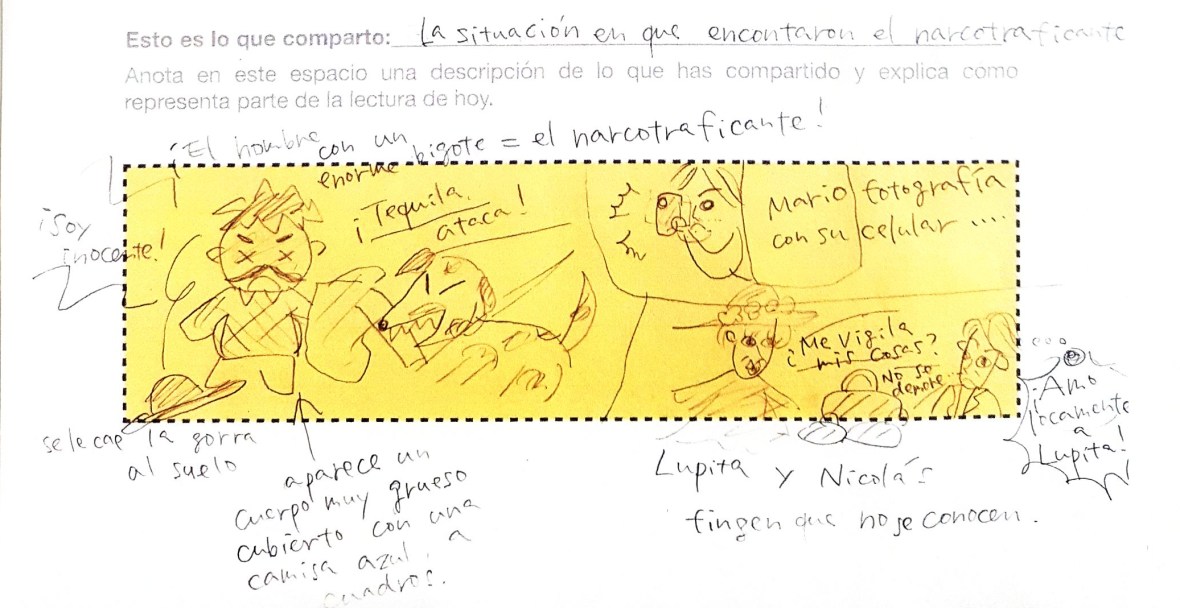 Esto es lo que comparto: La situación en que encontaron el narcotraficante
Anota en este espacio una descripción de lo que has compartido y explica cómo
representa parte de la lectura de hoy.
¡El hombre con un
enorme bigote = el narcotraficante!
¡Soy
inocente!
¡Tequila,
ataca!
Mario fotografía
con su celular ....
¿Me vigila
mis cosas?
No se
demore...
¡Amo
locamente
a
Lupita!
se le cae la gorra
al suelo
aparece un
cuerpo muy grueso
cubierto con una
camisa azul, a
cuadros.
Lupita y Nicolás
fingen que no se conocen.